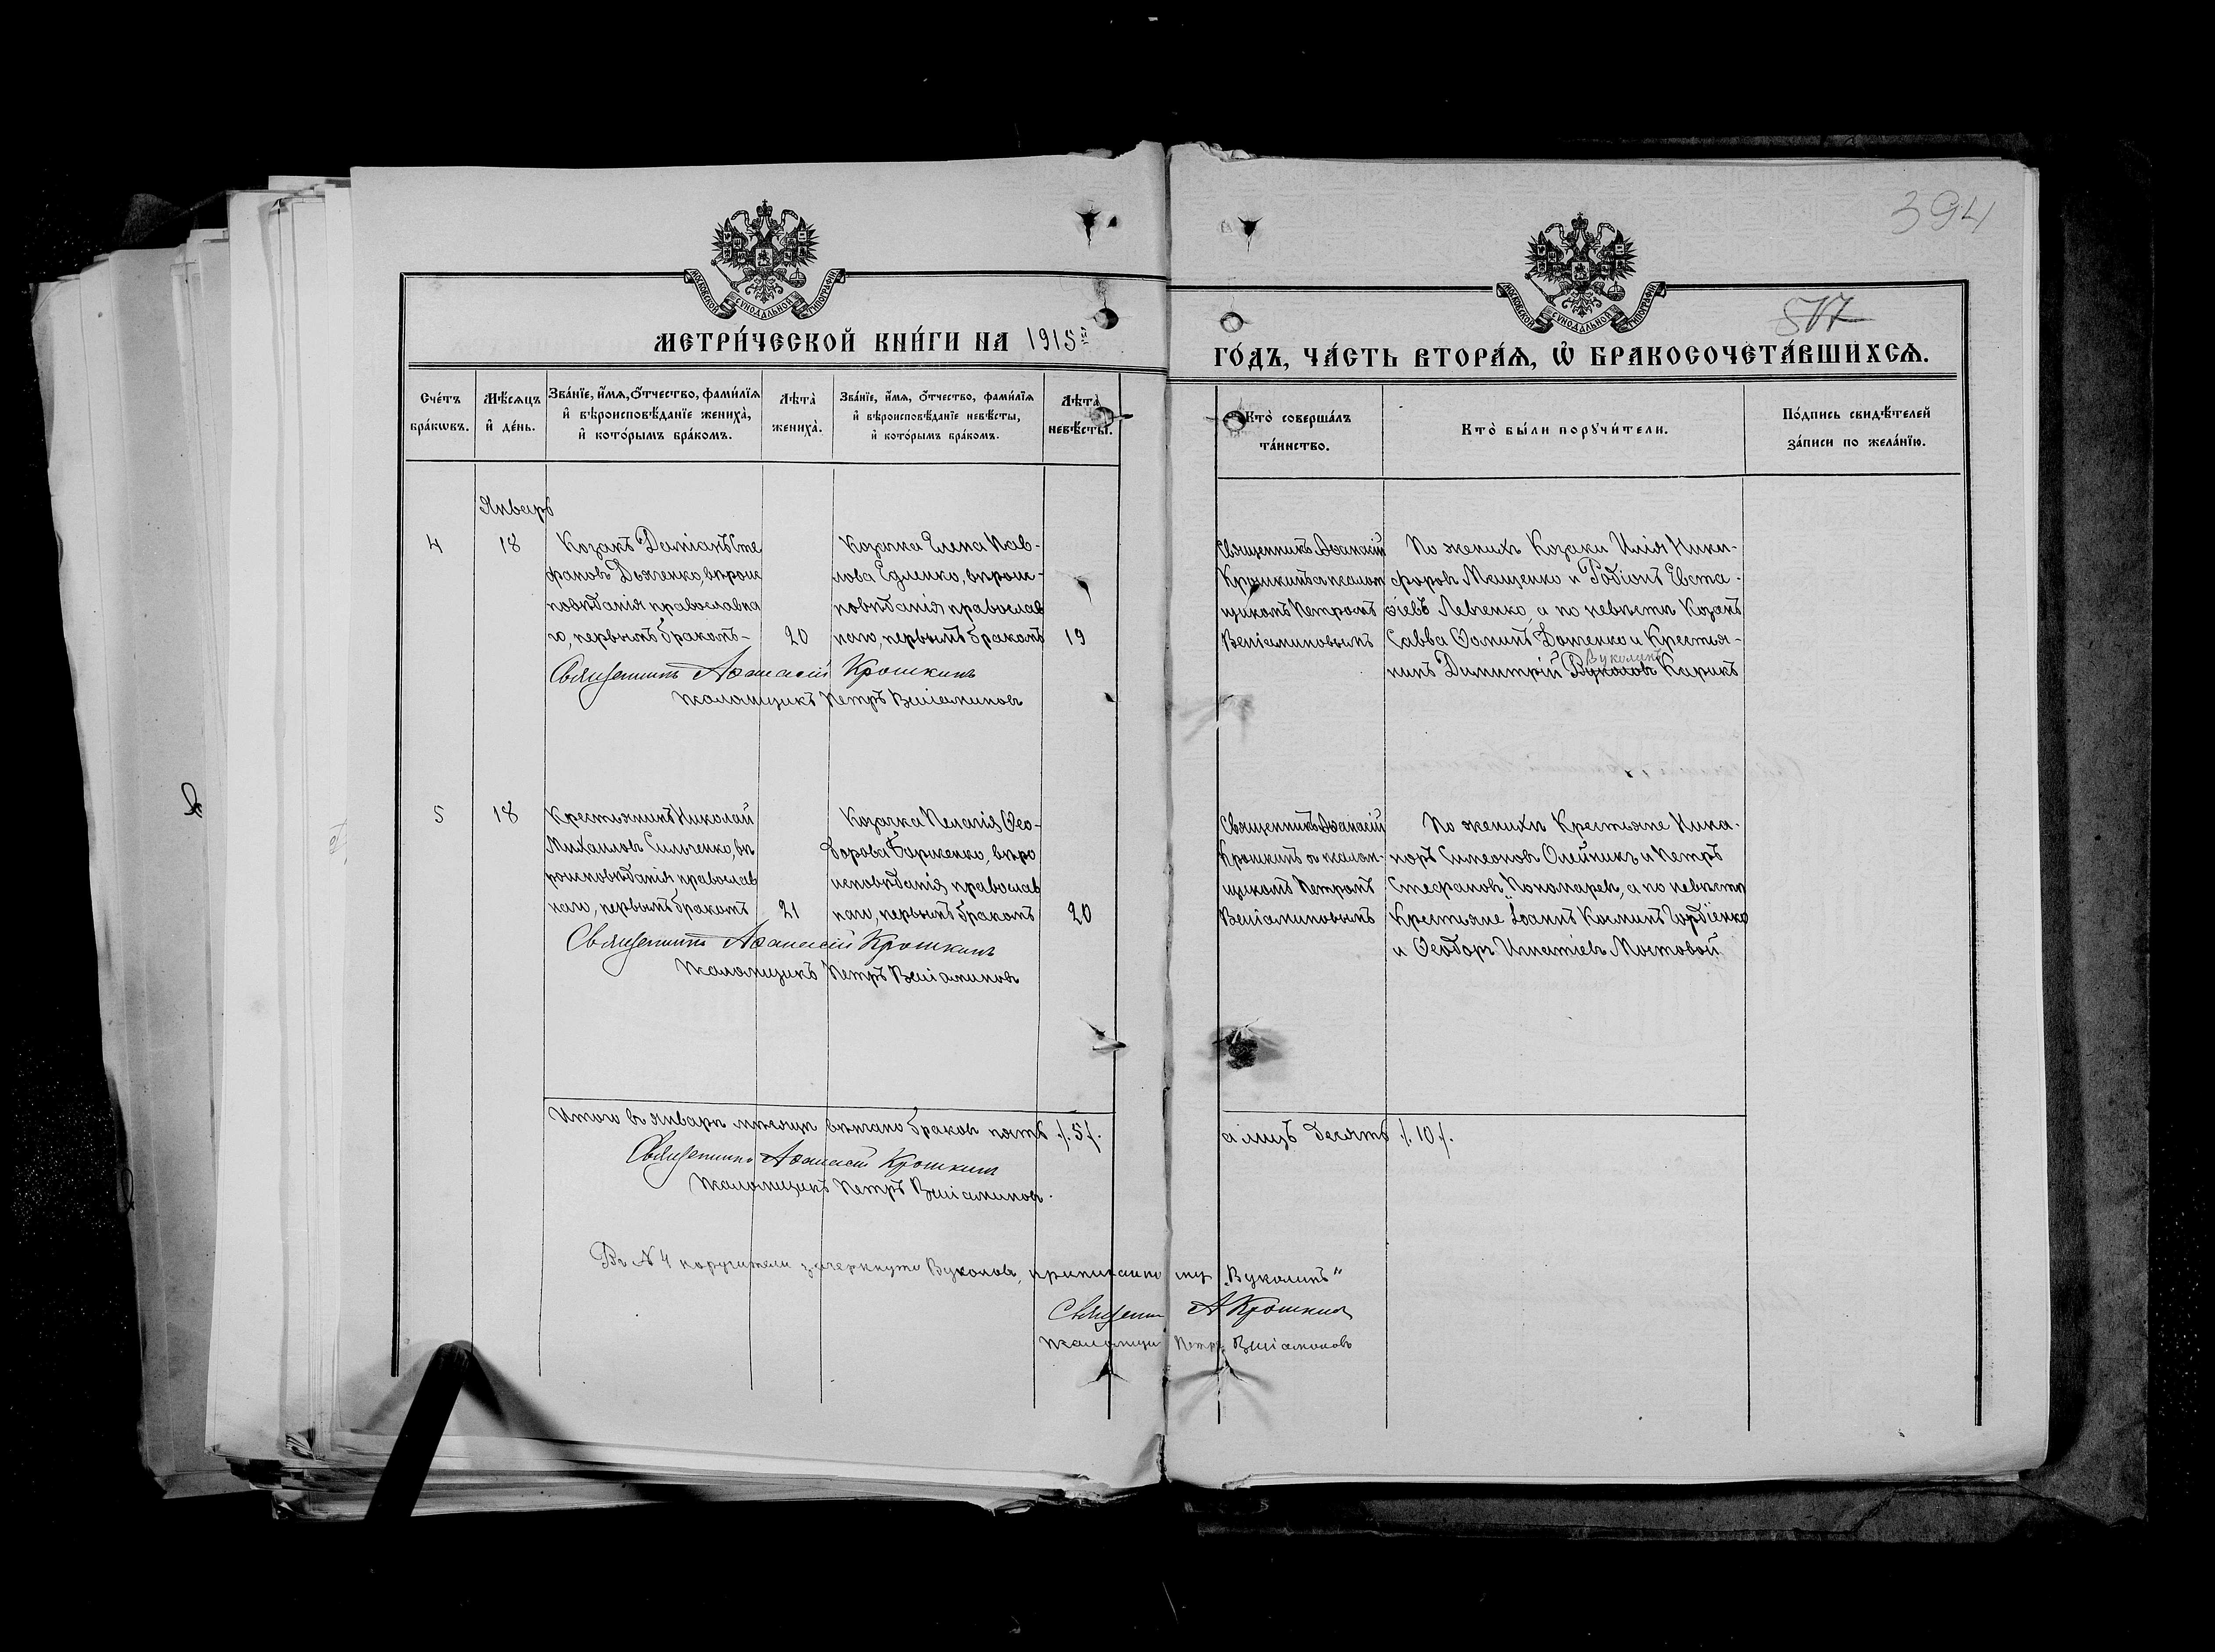 394
МОСКОВСКОЙ СУНОДАЛЬНОЙ ТИПОГРАФІИ
МОСКОВСКОЙ СУНОДАЛЬНОЙ ТИПОГРАФІИ
517
МЕТРИ́ЧЕСКОЙ КНИ́ГИ НА 1915й
ГО́ДЪ, ЧА́СТЬ ВТОРА́Ѧ, Ѡ҆ БРАКОСОЧЕТА́ВШИХСѦ.
Сче́тъ бра́кѡвъ.
Мѣ́сяцъ и҆ де́нь.
Зва́нїе, и҆́мѧ, ѻ҆́тчество, фами́лїѧ
и҆ вѣроисповѣ́данїе жениха̀,
и҆ кото́рымъ бра́комъ.
Лѣта̀ жениха̀.
Зва́нїе, и҆́мѧ, ѻ҆́тчество, фами́лїѧ
и҆ вѣроисповѣ́данїе невѣ́сты,
и҆ кото́рымъ бра́комъ.
Лѣта̀ невѣ́сты.
Кто̀ соверша́лъ та́инство.
Кто̀ бы́ли порꙋчи́тели.
По́дпись свидѣ́телей за́писи по жела́нїю.
Январь
4
18
Козакъ Даміанъ Сте
фановъ Дьяченко, вѣроис
повѣданія православна
го, первымъ бракомъ-
20
Козачка Елена Пав-
лова Едленко, вѣроис-
повѣданія православ
наго, первымъ бракомъ
19
Священникъ Аѳанасій
Крошкинъ съ псалом
щикомъ Петромъ
Веніаминовымъ
По женихѣ Козаки Илія Ники-
форовъ Мащенко и Родіонъ Евста-
фіевъ Левченко, а по невѣстѣ Козакъ
Савва Ѳоминъ Донченко и Крестья-
Вуколинъ
нинъ Димитрій Вуколовъ Карикъ
Священникъ Аѳанасій Крошкинъ
Псаломщикъ Петръ Веніаминовъ
5
18
Крестьянинъ Николай
Михаиловъ Сильченко, вѣ
роисповѣданія православ
наго, первымъ бракомъ
21
Козачка Пелагія Ѳео-
дорова Барженко, вѣро
исповѣданія православ
наго, первымъ бракомъ
20
Священникъ Аѳанасій
Крошкинъ съ псалом-
щикомъ Петромъ
Веніаминовымъ
По женихѣ Крестьяне Ника-
норъ Симеоновъ Олейникъ и Петръ
Стефановъ Пономаревъ, а по невѣстѣ
Крестьяне Іоаннъ Космина Гордіенко
и Ѳеодоръ Игнатіевъ Мостовой
Священникъ Аѳанасій Крошкинъ
Псаломщикъ Петръ Веніаминовъ
Итого въ январѣ мѣсяцѣ вѣнчано браковъ пять ./. 5 /. а лицъ десять ./. 10 /.
Священникъ Аѳанасій Крошкинъ
Псаломщикъ Петръ Веніаминовъ.
Въ № 4 поручители зачеркнуто Вуколовъ, приписано ему „Вуколинъ"
Священн А Крошкинъ
Псаломщи Петръ Веніаминовъ